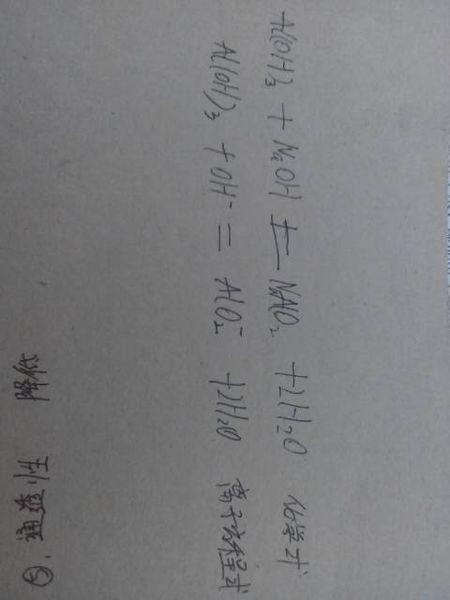 Al(OH)₃ + NaOH = NaAlO₂ + 2H₂O 化学式
Al(OH)₃ + OH⁻ = AlO₂⁻ + 2H₂O 离子方程式
⑤. 通透性 降低